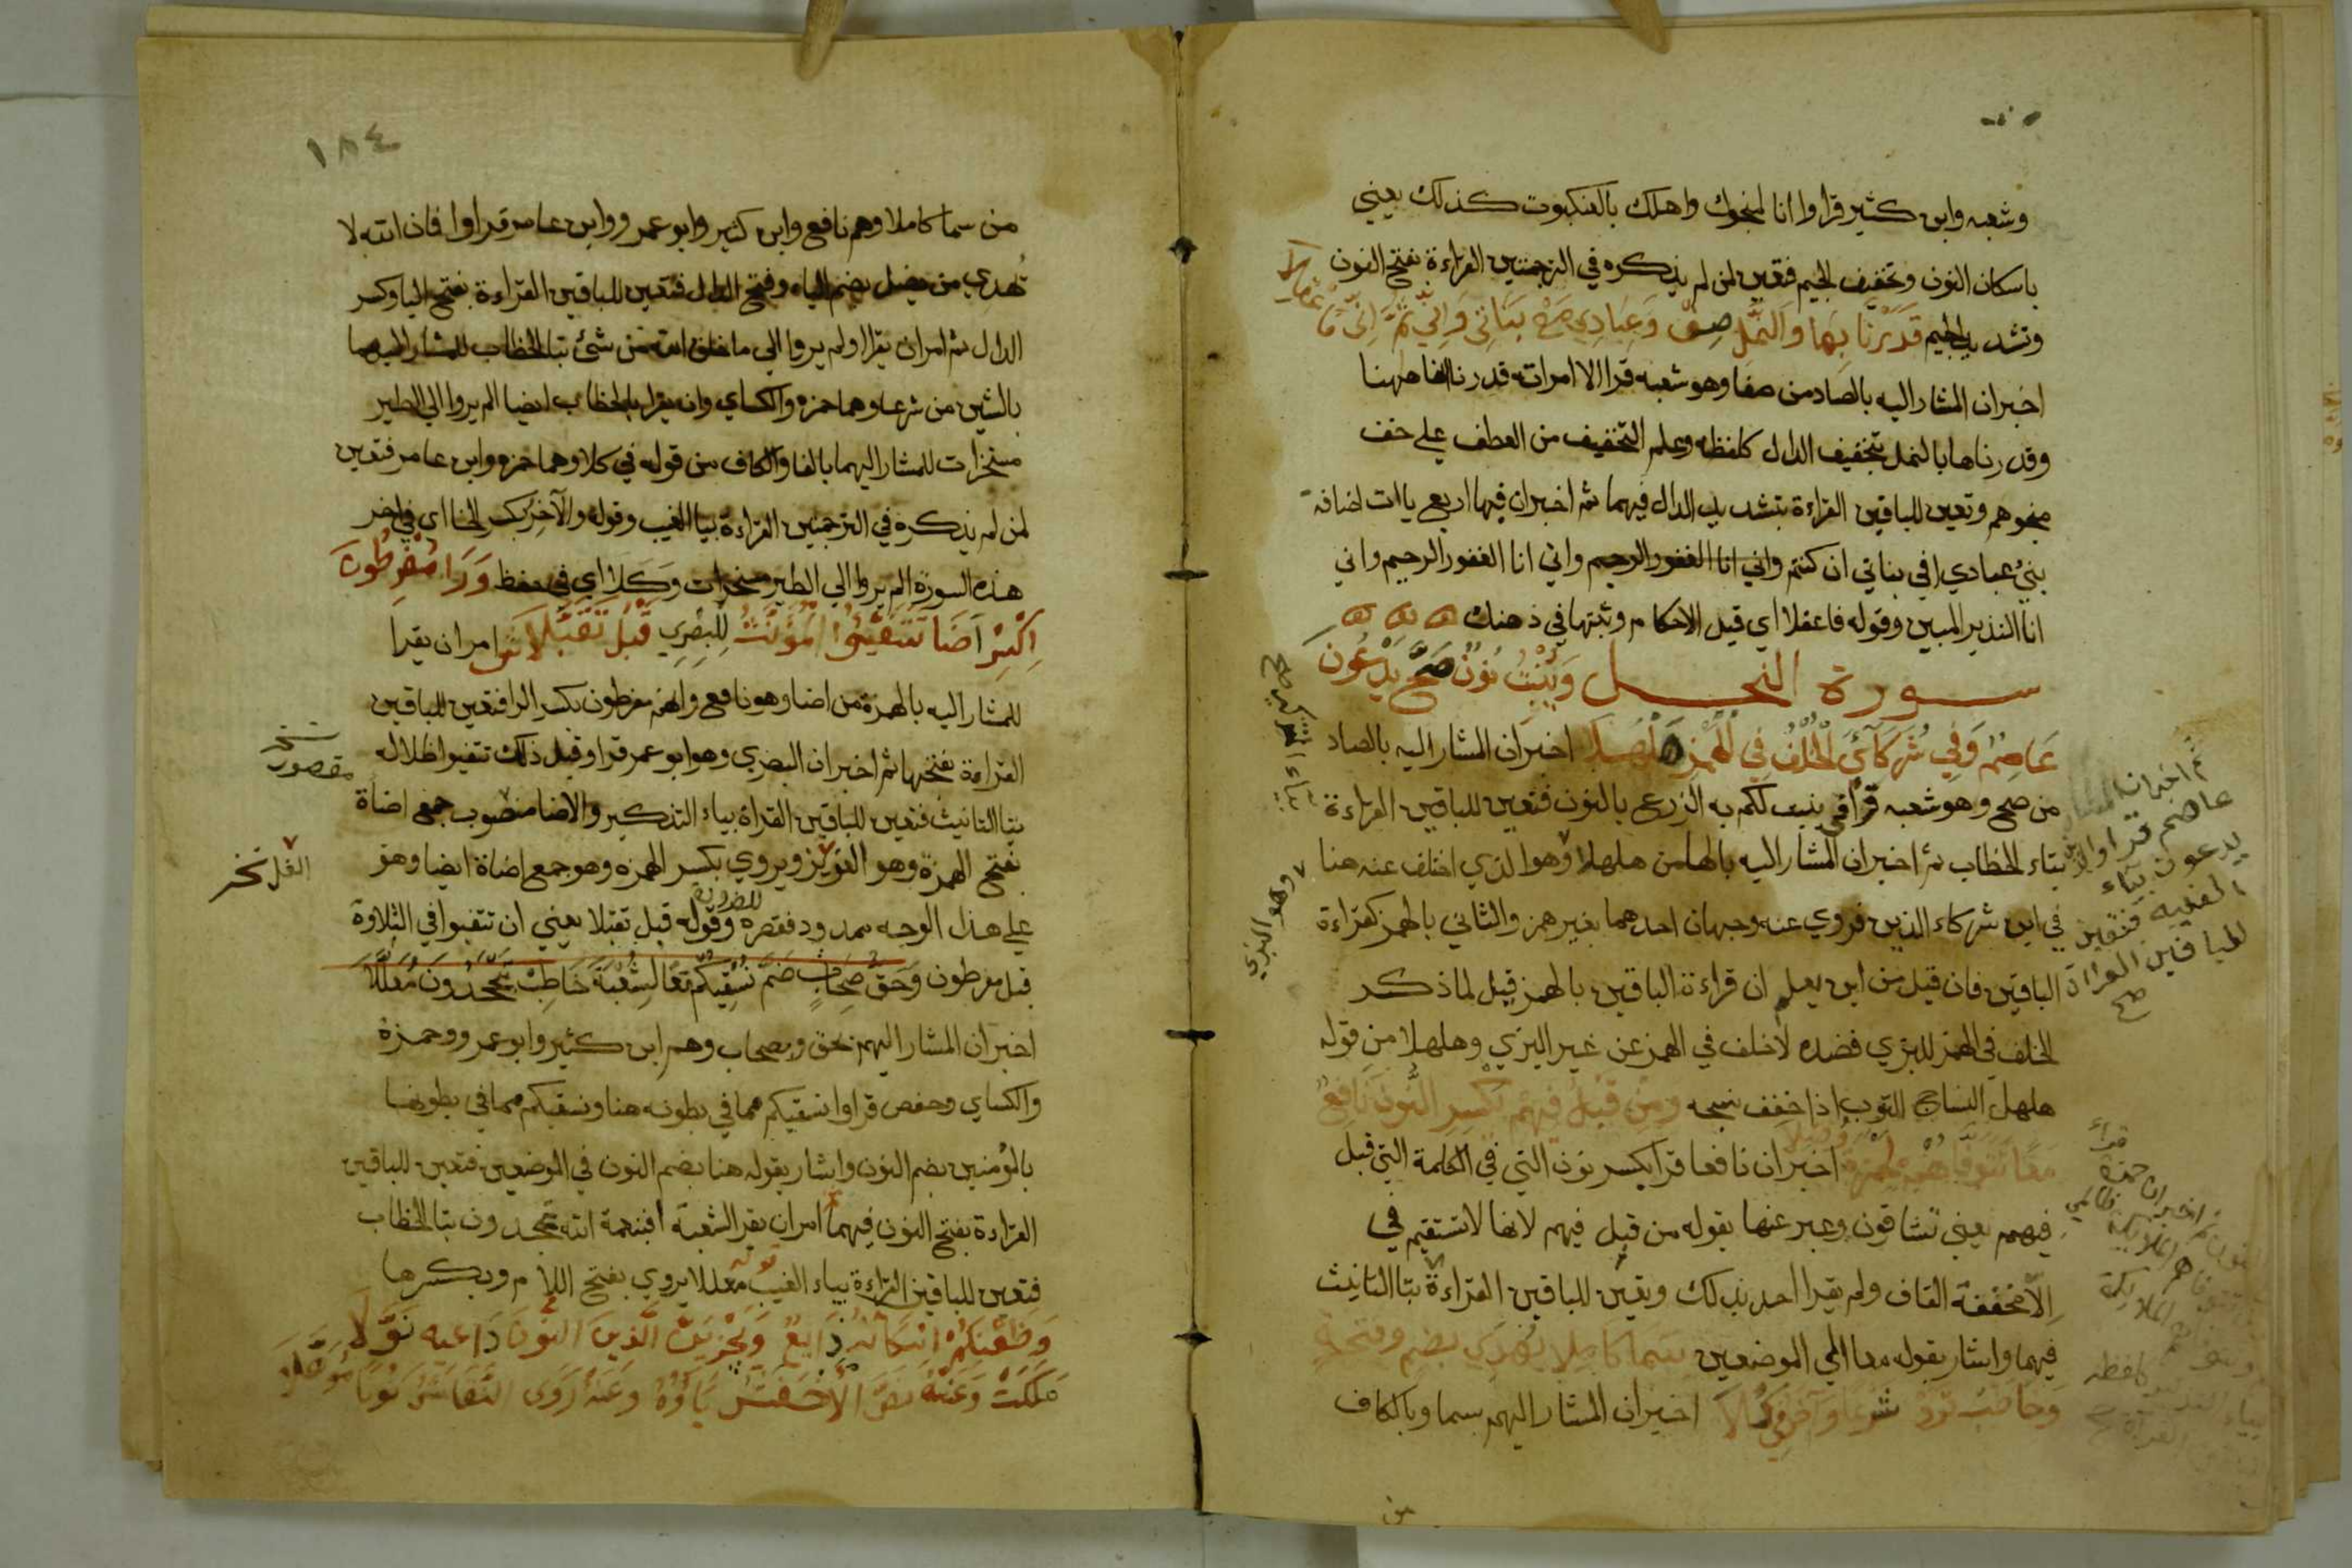 وشعبه وابن كثير قراوا انا لمنجوك واهلك بالعنكبوت كذلك يعني
باسكان النون وتخفيف الجيم فتعين لمن لم يذكره في الترجمتين القراءة بفتح النون
وتشديد الجيم قَدَرْنَا بِهَا وَالنَّمْلِ صِفْ وَعِبَادِيَ مَعْ بَنَاتِي وَاِنِّي ثُمَّ اِنِّي فَاعْقِلَا
اخبر ان المشار اليه بالصاد من صفا وهو شعبه قرا الا امراته قدرنا انها هنا
وقدرناها بالنمل بتخفيف الدال كلفظه وعلم التخفيف من العطف علي خف
منجوهم وتعين للباقين القراءة بتشديد الدال فيهما ثم اخبر ان فيها اربع ياات اضافة
نبئ عبادي اني بناتي ان كنتم واني انا الغفور الرحيم واني انا الغفور الرحيم واني
انا النذير المبين وقوله فاعقلا اي قيد الاحكام وثبتها في ذهنك
سورة النحل وَيُنْبِتُ نُونٌ صَحَّ يَدْعُونَ
عَاصِمٌ وَفِي شُرَكَآئِيَ الْخُلْفُ فِي الْهَمْزِ هَلْهَلَا اخبر ان المشار اليه بالصاد
من صح وهو شعبه قرأ ننبت لكم به الزرع بالنون فتعين للباقين القراءة
بتاء الخطاب ثم اخبر ان المشار اليه بالها من هلهلا وهو الذي اختلف عنه هنا
في اين شركاء الذين فروي عنه وجهان احدهما بغير همز والثاني بالهمز كقراءة
الباقين فان قيل من اين يعلم ان قراءة الباقين بالهمز قيل لما ذكر
الخلف في الهمز للبزي فضده لا خلف في الهمز عن غير البزي وهلهلا من قوله
هلهل النساج الثوب اذا خفف نسجه وَمِنْ قَبْلُ فِيهِمْ يَكْسِرُ النُّونَ نَافِعٌ
مَعًا يَتَوَفَّاهُمْ لِحَمْزَةَ وُصِّلَا اخبر ان نافعا قرا بكسر نون التي في الكلمة التي قبل
فيهم يعني تشاقون وعبر عنها بقوله من قبل فيهم لانها لا تستقيم في
الا مخففة القاف ولم يقرا احد بذلك وتعين للباقين القراءة بتا التانيث
فيهما واشار بقوله معا الي الموضعين سَمَا كَامِلًا يُهْدِي بِضَمٍّ وَفَتْحَةٍ
وَخَاطِبْ تَرَوْا شَرْعًا وَالآخِرُ فِي كِلَا اخبر ان المشار اليهم بسما وبالكاف
من
ثم اخبر ان
عاصم قرا والذين
يدعون بياء
الغيبه فتعين
للباقين القراءة
صح
وهو البزي
١٨٤
من سما كاملا وهم نافع وابن كثير وابو عمرو وابن عامر قراوا فان الله لا
تُهدي من يضل بضم الياء وفتح الدال فتعين للباقين القراءة بفتح اليا وكسر
الدال ثم امر ان يقرا اولم يروا الي ما خلق الله من شئ بتا الخطاب للمشار اليهما
بالشين من شرعا وهما حمزه والكساي وان يقرا بالخطاب ايضا الم يروا الي الطير
مسخرات للمشار اليهما بالفا والكاف من قوله في كلا وهما حمزه وابن عامر فتعين
لمن لم يذكره في الترجمتين القراءة بيا الغيب وقوله والآخِر بكسر الخا اي في اخر
هذه السورة الم يروا الي الطير مسخرات وكلا اي في حفظ وَرَا مُفْرِطُونَ
اكْسِرْ اَضَا تَتَفَيَّئُوا الْمُؤَنَّثُ لِلْبَصْرِي قَبْلُ تُقُبِّلَا امر ان يقرا
للمشار اليه بالهمزة من اضا وهو نافع وانهم مفرطون بكسر الرا فتعين للباقين
القراءة بفتحها ثم اخبر ان البصري وهو ابو عمر قرا وقبل ذلك تتفيوا ظلاله
بتا التانيث فتعين للباقين القراة بياء التذكير والاضا منصوب جمع اضاة
بفتح الهمزة وهو الغدير ويروي بكسر الهمزه وهو جمع اضاة ايضا وهو
علي هذا الوجه ممدود فقصره وقوله قبل تقبلا يعني ان تتفيوا في التلاوة
للضرورة
قبل مفرطون وَحَقُّ صِحَابٍ ضَمَّ نُسْقِيكُمْ مَعًا لِشُعْبَةَ خَاطِبْ يَجْحَدُونَ مُعَلَّلَا
اخبر ان المشار اليهم بحق وبصحاب وهم ابن كثير وابو عمرو وحمزة
والكساي وحفص قراوا نسقيكم مما في بطونه هنا ونسقيكم مما في بطونها
بالمؤمنين بضم النون واشار بقوله هنا بضم النون في الموضعين فتعين للباقين
القراءة بفتح النون فيهما امر ان يقرا لشعبة افبنعمة الله تجحدون بتا الخطاب
فتعين للباقين القراءة بياء الغيب معللا يروي بفتح اللام وبكسرها
قوله
وَظَعْنِكُمُ اِسْكَانُهُ ذَائِعٌ وَنَجْزِيَنَّ الَّذِينَ النُّونُ دَاعِيهِ نُوِّلَا
مَلَكْتَ وَعَنْهُ نَصَّ الْاَخْفَشُ يَاءَهُ وَعَنْهُ رَوَى النَّقَّاشُ نُونًا مُوَهَّلَا
مقصور